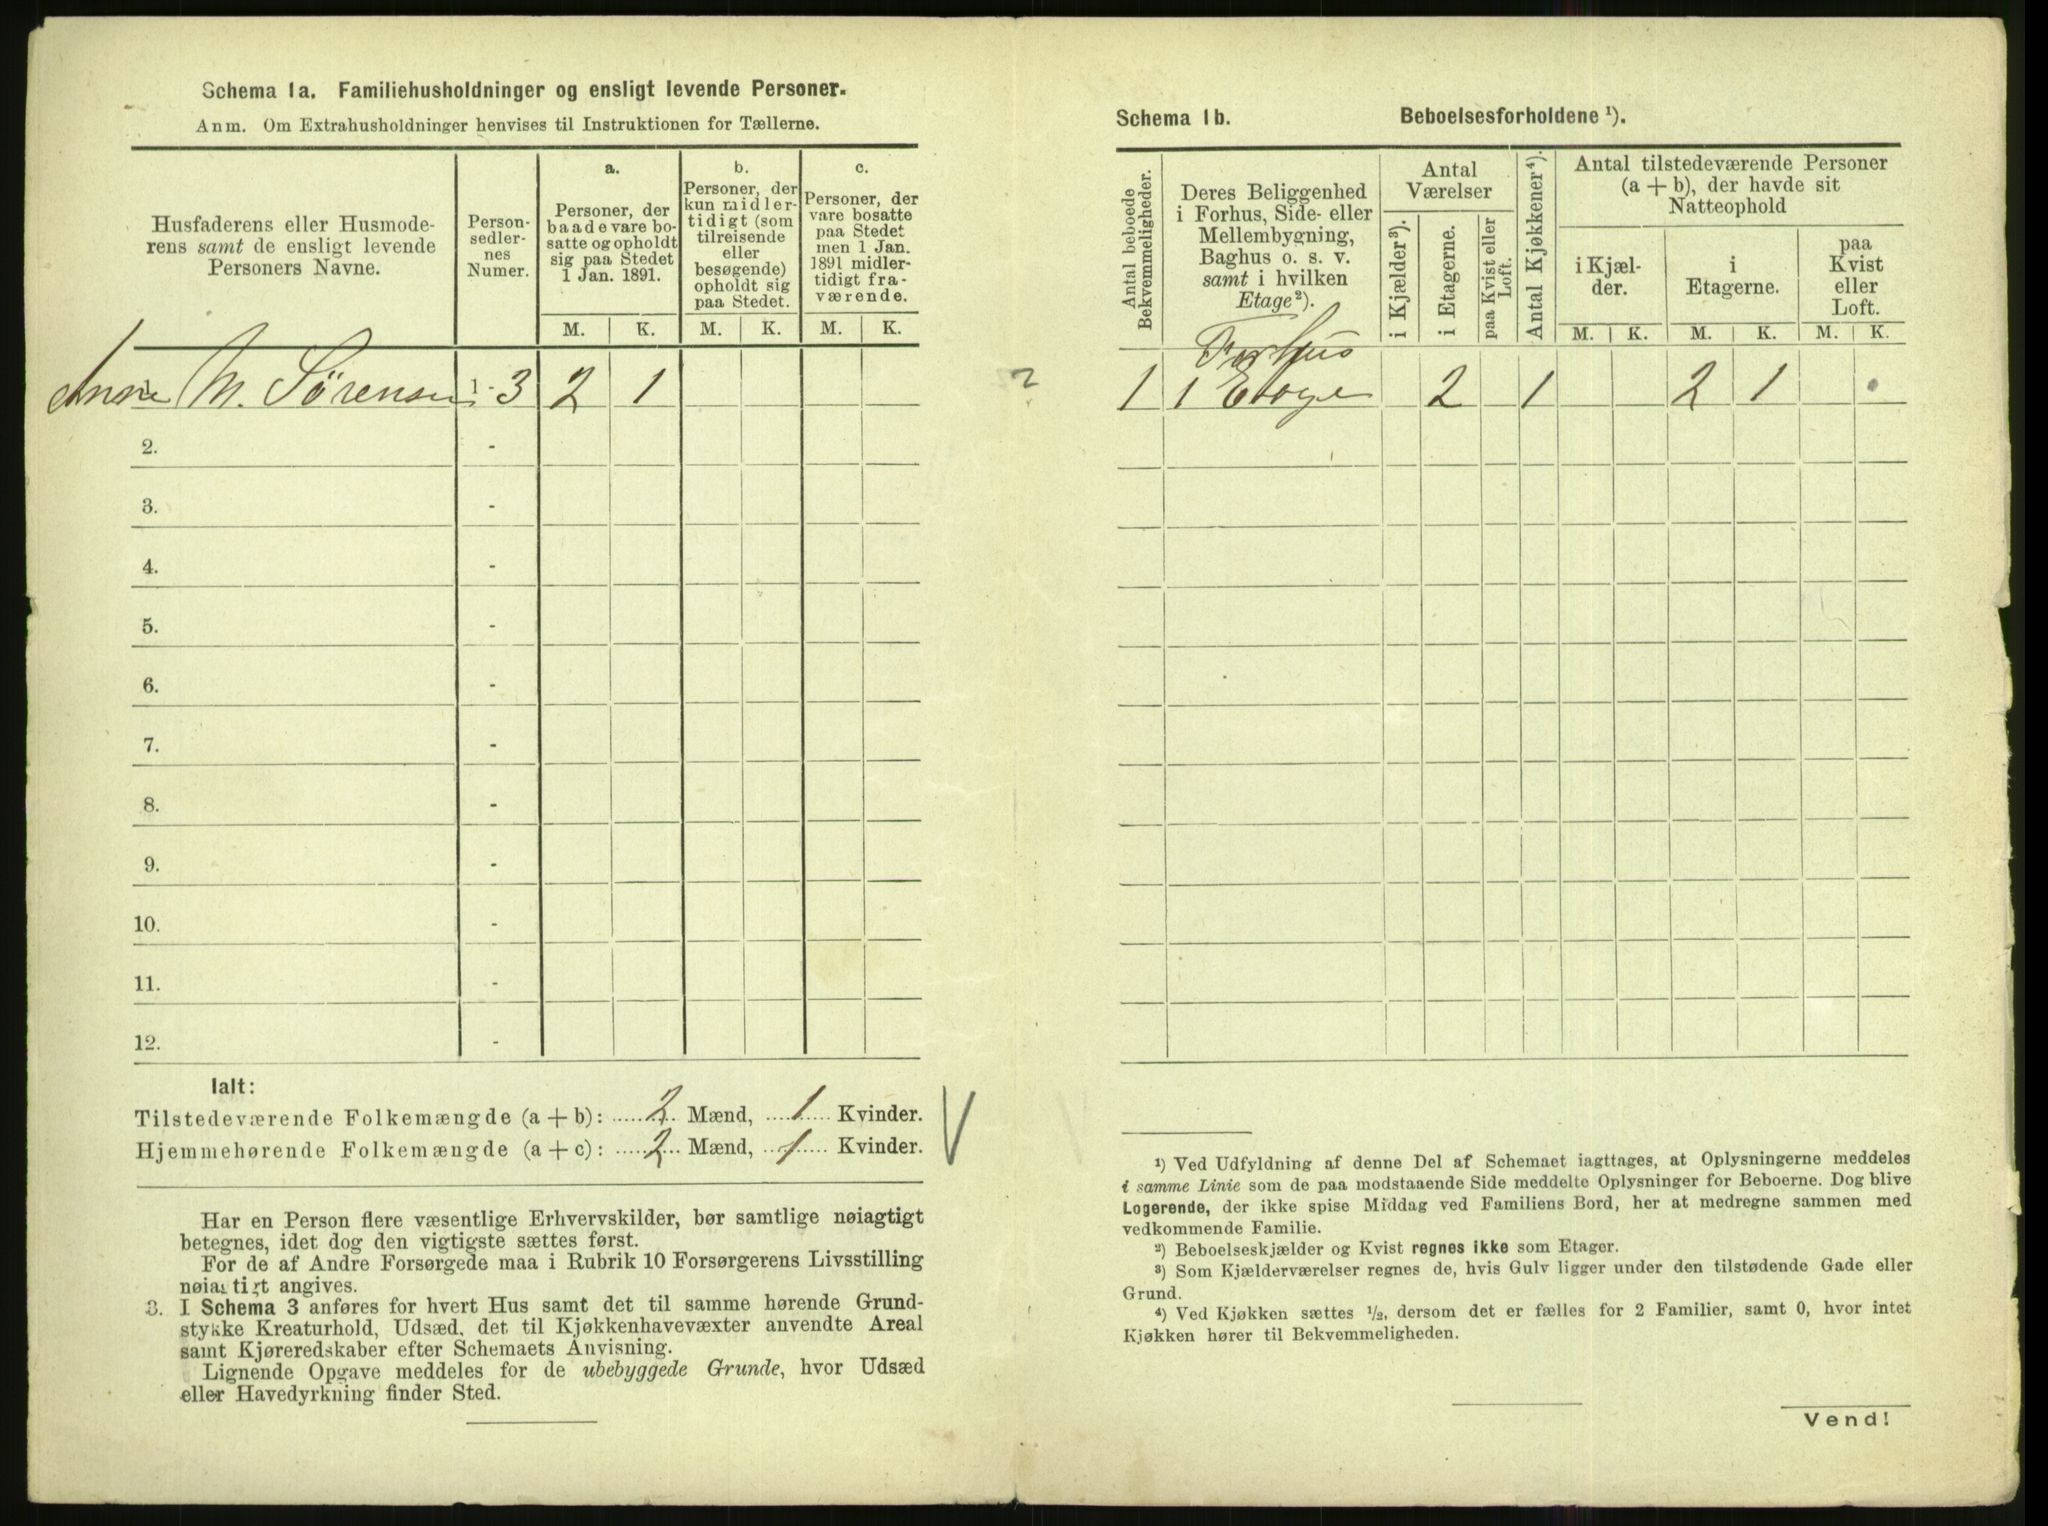 Schema 1a. Familiehusholdninger og ensligt levende Personer.
Anm. Om Extrahusholdninger henvises til Instruktionen for Tællerne.
Husfaderens eller Husmode-
rens samt de ensligt levende
Personers Navne.
Person-
sedler-
nes
Numer.
a.
Personer, der
baade vare bo-
satte og opholdt
sig paa Stedet
1 Jan. 1891.
b.
Personer, der
kun midler-
tidigt (som
tilreisende
eller
besøgende)
opholdt sig
paa Stedet.
c.
Personer, der
vare bosatte
paa Stedet
men 1 Jan.
1891 midler-
tidigt fra-
værende.
M. K. M. K. M. K.
M. Sörensen 1-3 2 1
2. -
3. -
4. -
5. -
6. -
7. -
8. -
9. -
10. -
11. -
12. -
Ialt:
Tilstedeværende Folkemængde (a + b): 2 Mænd, 1 Kvinder.
Hjemmehørende Folkemængde (a + c): 2 Mænd, 1 Kvinder.
Har en Person flere væsentlige Erhvervskilder, bør samtlige nøiagtigt
betegnes, idet dog den vigtigste sættes først.
For de af Andre Forsørgede maa i Rubrik 10 Forsørgerens Livsstilling
nøiagtigt angives.
3. I Schema 3 anføres for hvert Hus samt det til samme hørende Grund-
stykke Kreaturhold, Udsæd, det til Kjøkkenhavevæxter anvendte Areal
samt Kjøreredskaber efter Schemaets Anvisning.
Lignende Opgave meddeles for de ubebyggede Grunde, hvor Udsæd
eller Havedyrkning finder Sted.
Schema 1b. Beboelsesforholdene ¹).
Antal beboede
Bekvemmeligheder.
Deres Beliggenhed
i Forhus, Side- eller
Mellembygning,
Baghus o. s. v.
samt i hvilken
Etage²).
Antal
Værelser
i Kjælder³).
i Etagerne.
paa Kvist eller
Loft.
Antal Kjøkkener⁴).
Antal tilstedeværende Personer
(a + b), der havde sit
Natteophold
i Kjæl-
der.
i
Etagerne.
paa
Kvist
eller
Loft.
M. K. M. K. M. K.
Forhus
? 1 1 Etage 2 1 2 1
¹) Ved Udfyldning af denne Del af Schemaet iagttages, at Oplysningerne meddeles
i samme Linie som de paa modstaaende Side meddelte Oplysninger for Beboerne. Dog blive
Logerende, der ikke spise Middag ved Familiens Bord, her at medregne sammen med
vedkommende Familie.
²) Beboelseskjælder og Kvist regnes ikke som Etager.
³) Som Kjælderværelser regnes de, hvis Gulv ligger under den tilstødende Gade eller
Grund.
⁴) Ved Kjøkken sættes ½, dersom det er fælles for 2 Familier, samt 0, hvor intet
Kjøkken hører til Bekvemmeligheden.
Vend!